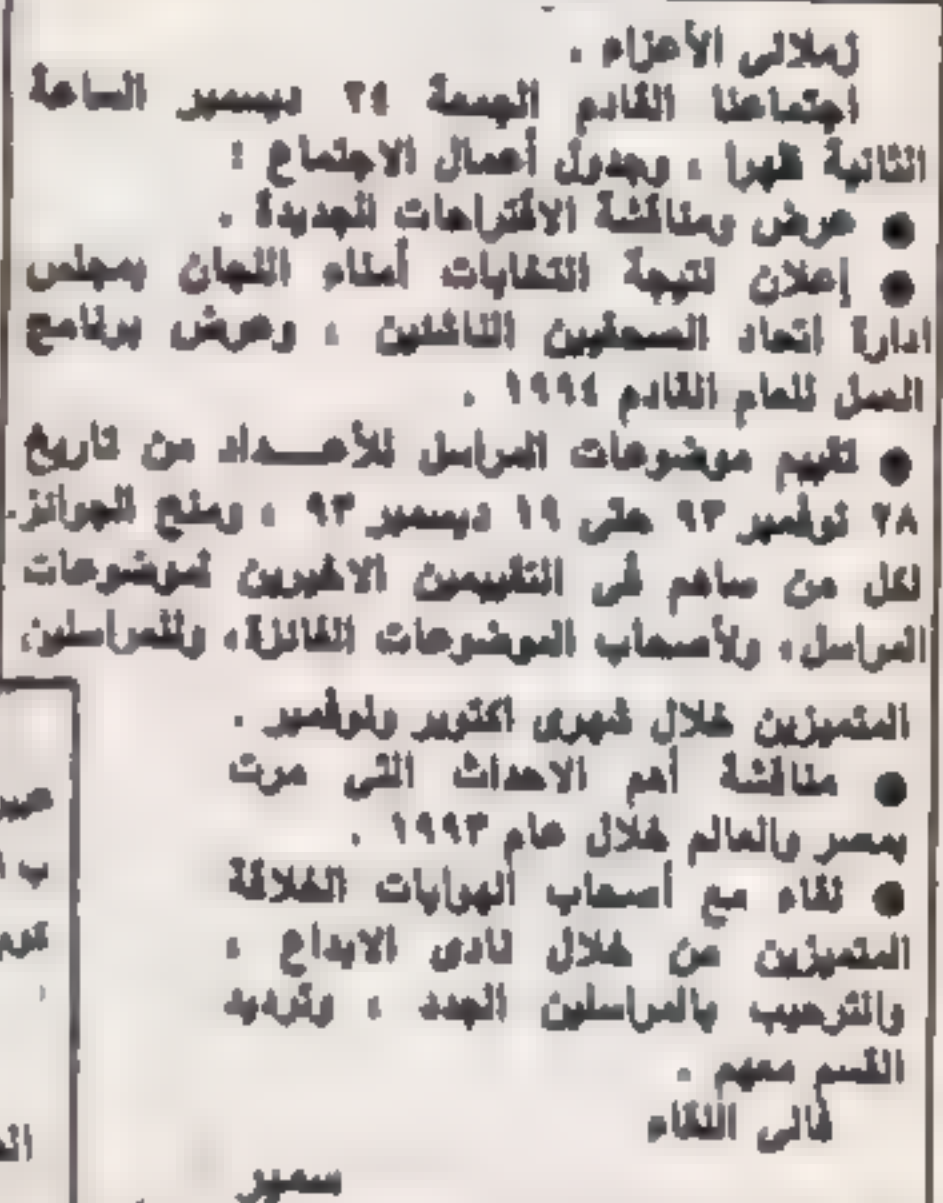 زملائى الأعزاء .
اجتماعنا القادم الجمعة ٢٤ ديسمبر الساعة
الثانية ظهرا ، وجدول أعمال الاجتماع :
● عرض ومناقشة الاقتراحات الجديدة .
● إعلان نتيجة انتخابات أمناء اللجان بمجلس
ادارة اتحاد الصحفيين الناشئين ، وعرض برنامج
العمل للعام القادم ١٩٩٤ .
● تقييم موضوعات المراسل للأعــداد من تاريخ
٢٨ نوفمبر ٩٣ حتى ١٩ ديسمبر ٩٣ ، ومنح الجوائز.
لكل من ساهم فى التقييمين الاخيرين لموضوعات
المراسل، ولأصحاب الموضوعات الفائزة، وللمراسلين
المتميزين خلال شهرى اكتوبر ونوفمبر .
● مناقشة أهم الاحداث التى مرت
بمصر والعالم خلال عام ١٩٩٣ .
● لقاء مع أصحاب الهوايات الخلاقة
المتميزين من خلال نادى الابداع ،
والترحيب بالمراسلين الجدد ، وترديد
القسم معهم .
فالى اللقاء
سمير